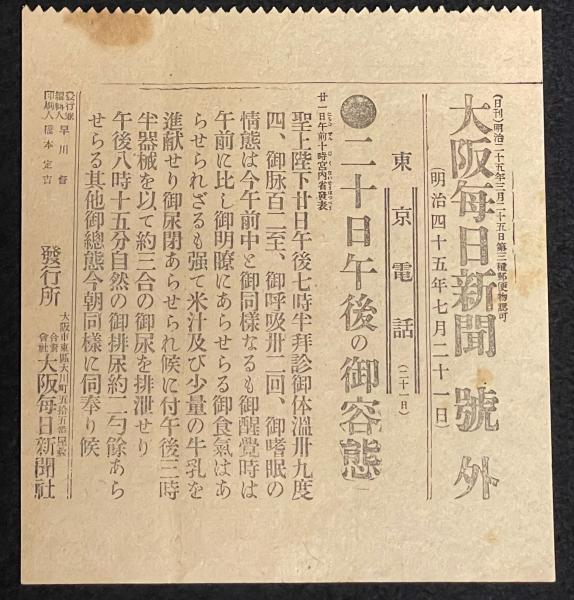 (日刊)明治二十五年三月二十五日第三種郵便物認可
大阪每日新聞 號外
(明治四十五年七月二十一日)
東京電話(二十一日)
●二十日午後の御容態
廿一日午前十時宮內省發表
聖上陛下廿日午後七時半拜診御体溫卅九度
四、御脉百二至、御呼吸卅二回、御嗜眠の
情態は今午前中と御同樣なるも御醒覺時は
午前に比し御明瞭にあらせらる御食氣はあ
らせられざるも强て米汁及び少量の牛乳を
進献せり御尿閉あらせられ候に付午後三時
半器械を以て約三合の御尿を排泄せり
午後八時十五分自然の御排尿約二勺餘あら
せらる其他御總態今朝同樣に伺奉り候
發行兼編輯人 早川督
印刷人 橋本定吉
發行所
大阪市東區大川町五拾五番屋敷
合資會社 大阪每日新聞社